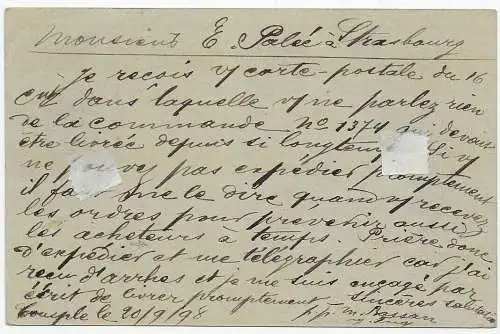 Monsieur E. Palée à Strasbourg
Je reçois v/ carte-postale du 16
ct dans laquelle v/ ne parlez rien
de la commande No 1374 qui devait
être livrée depuis si longtemps Si v/
ne pouvez pas expédier promptement
il faut me le dire quand v/ recevez
les ordres pour prevenir aussi
les acheteurs à temps. Prière donc
d'expédier et me télégraphier car j'ai
reçu d'arrhes et je me suis engagé par
écrit de livrer promptement sincères salutations
le 20/9/98 p.p. m.